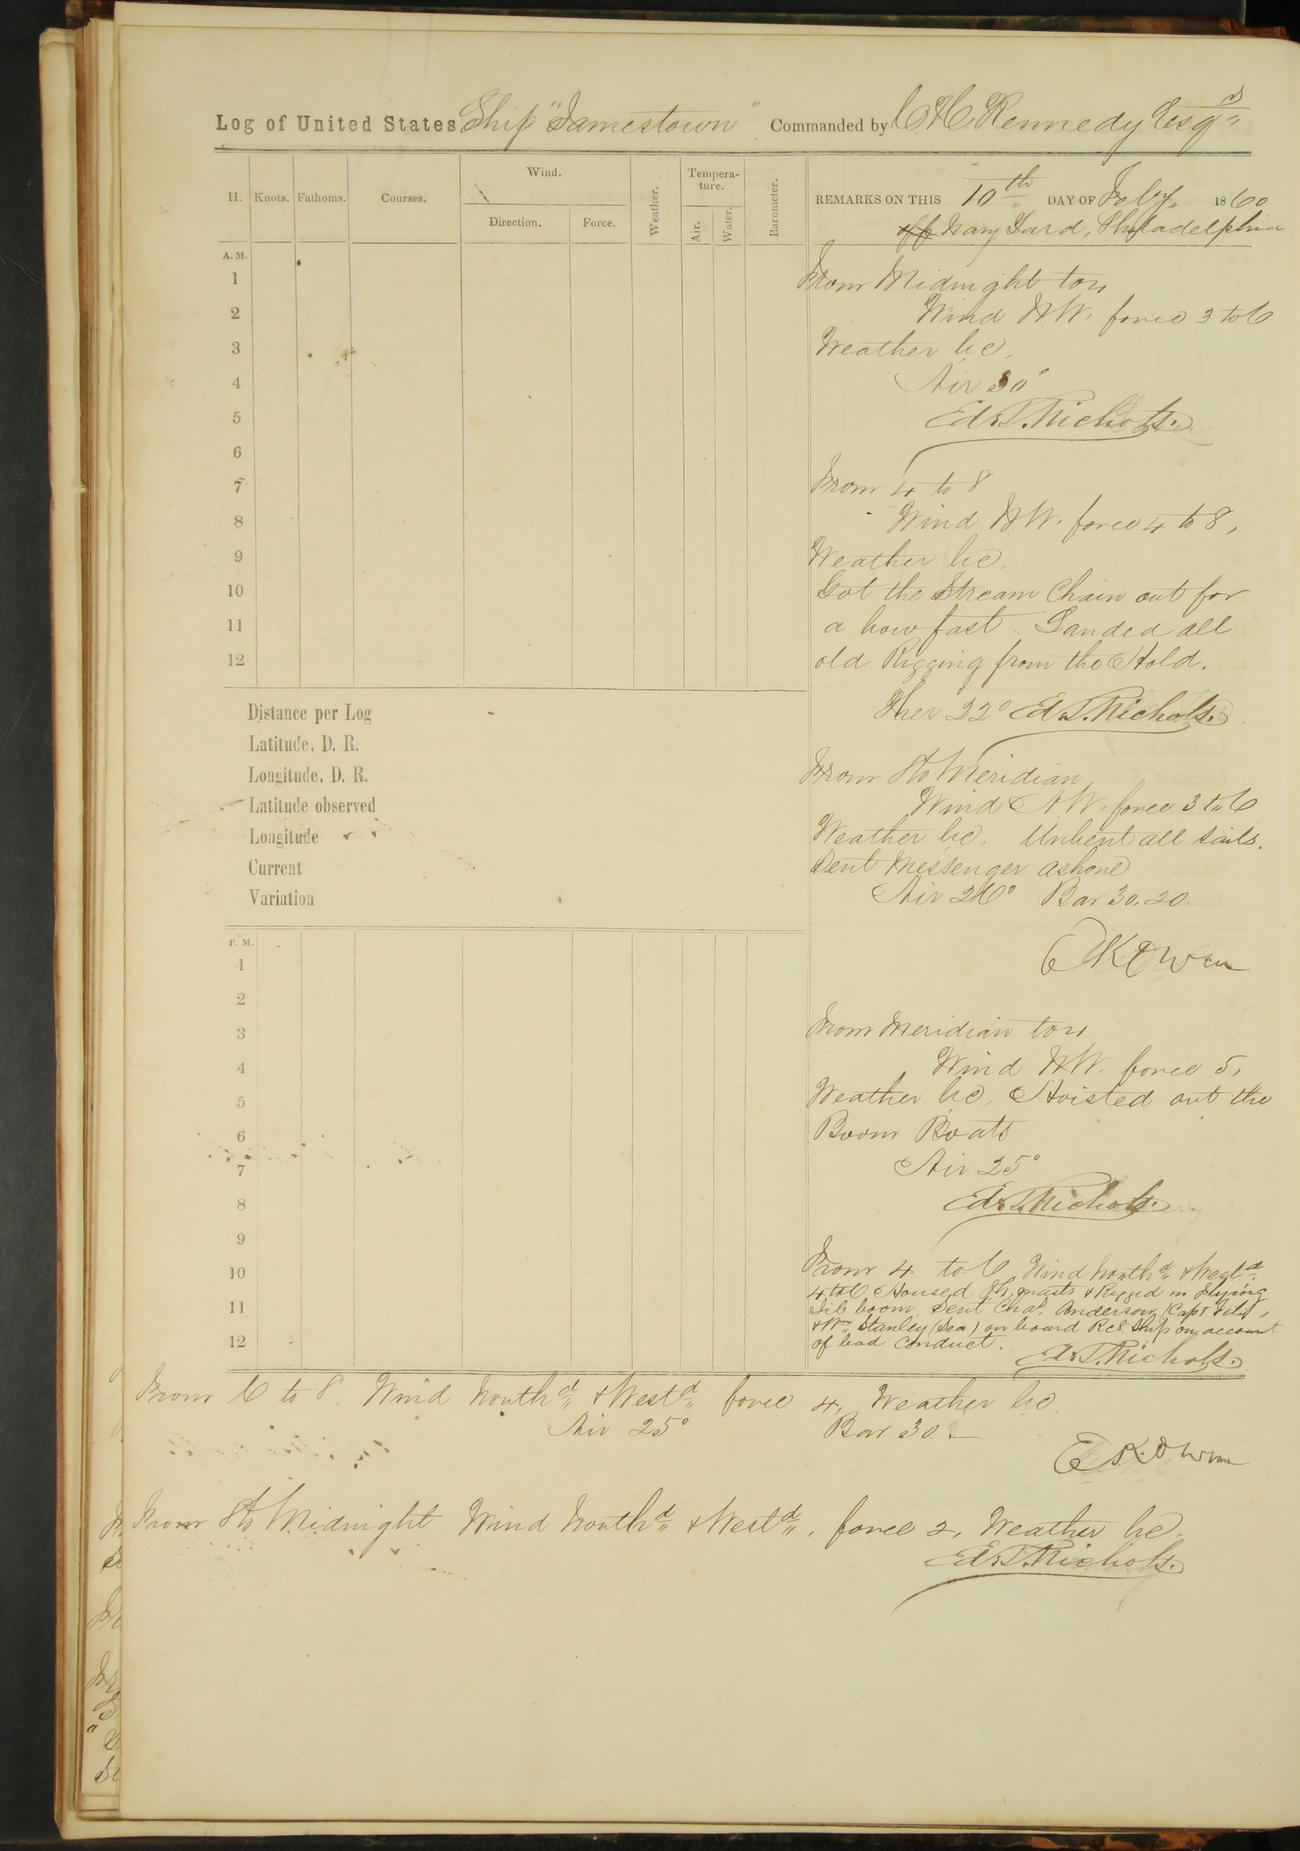 Log of United States Ship "Jamestown" Commanded by C. H. Kennedy Esqr
H. Knots. Fathoms. Courses. Wind. Direction. Force. Weather. Tempera-ture. Air. Water. Barometer.
REMARKS ON THIS 10th DAY OF Feby, 1860
off Navy Yard, Philadelphia
A. M.
1
2
3
4
5
6
7
8
9
10
11
12
From Midnight to 4
Wind N.W. force 3 to 6
Weather bc,
Air 30°
Ed. T. Nichols.
From 4 to 8
Wind N.W. force 4 to 8,
Weather bc,
Got the Stream Chain out for
a bow fast. Landed all
old Rigging from the Hold.
Ther 22° Ed. T. Nichols.
Distance per Log
Latitude, D. R.
Longitude, D. R.
Latitude observed
Longitude
Current
Variation
From 8 to Meridian
Wind N.W. force 3 to 6
Weather bc. Unbent all sails.
Sent Messenger ashore
Air 26° Bar 30.20
E K Owen
P. M.
1
2
3
4
5
6
7
8
9
10
11
12
From Meridian to 4
Wind N.W. force 5,
Weather bc, Hoisted out the
Boom Boats
Air 25°
Ed. T. Nichols.
From 4 to 6 Wind North'd & West'd
4 to 6 Housed masts & Rigged in Flying
Jib boom Sent Chas. Anderson (Capt
& Wm Stanley (Sea) on board Rec Ship on account
of bad conduct.
Ed. T. Nichols.
From 6 to 8 Wind North'd & West'd force 4, Weather bc.
Air 25° Bar 30.
E K. Owen
From 8 to Midnight Wind North'd & West'd, force 2, Weather bc.
Ed. T. Nichols.